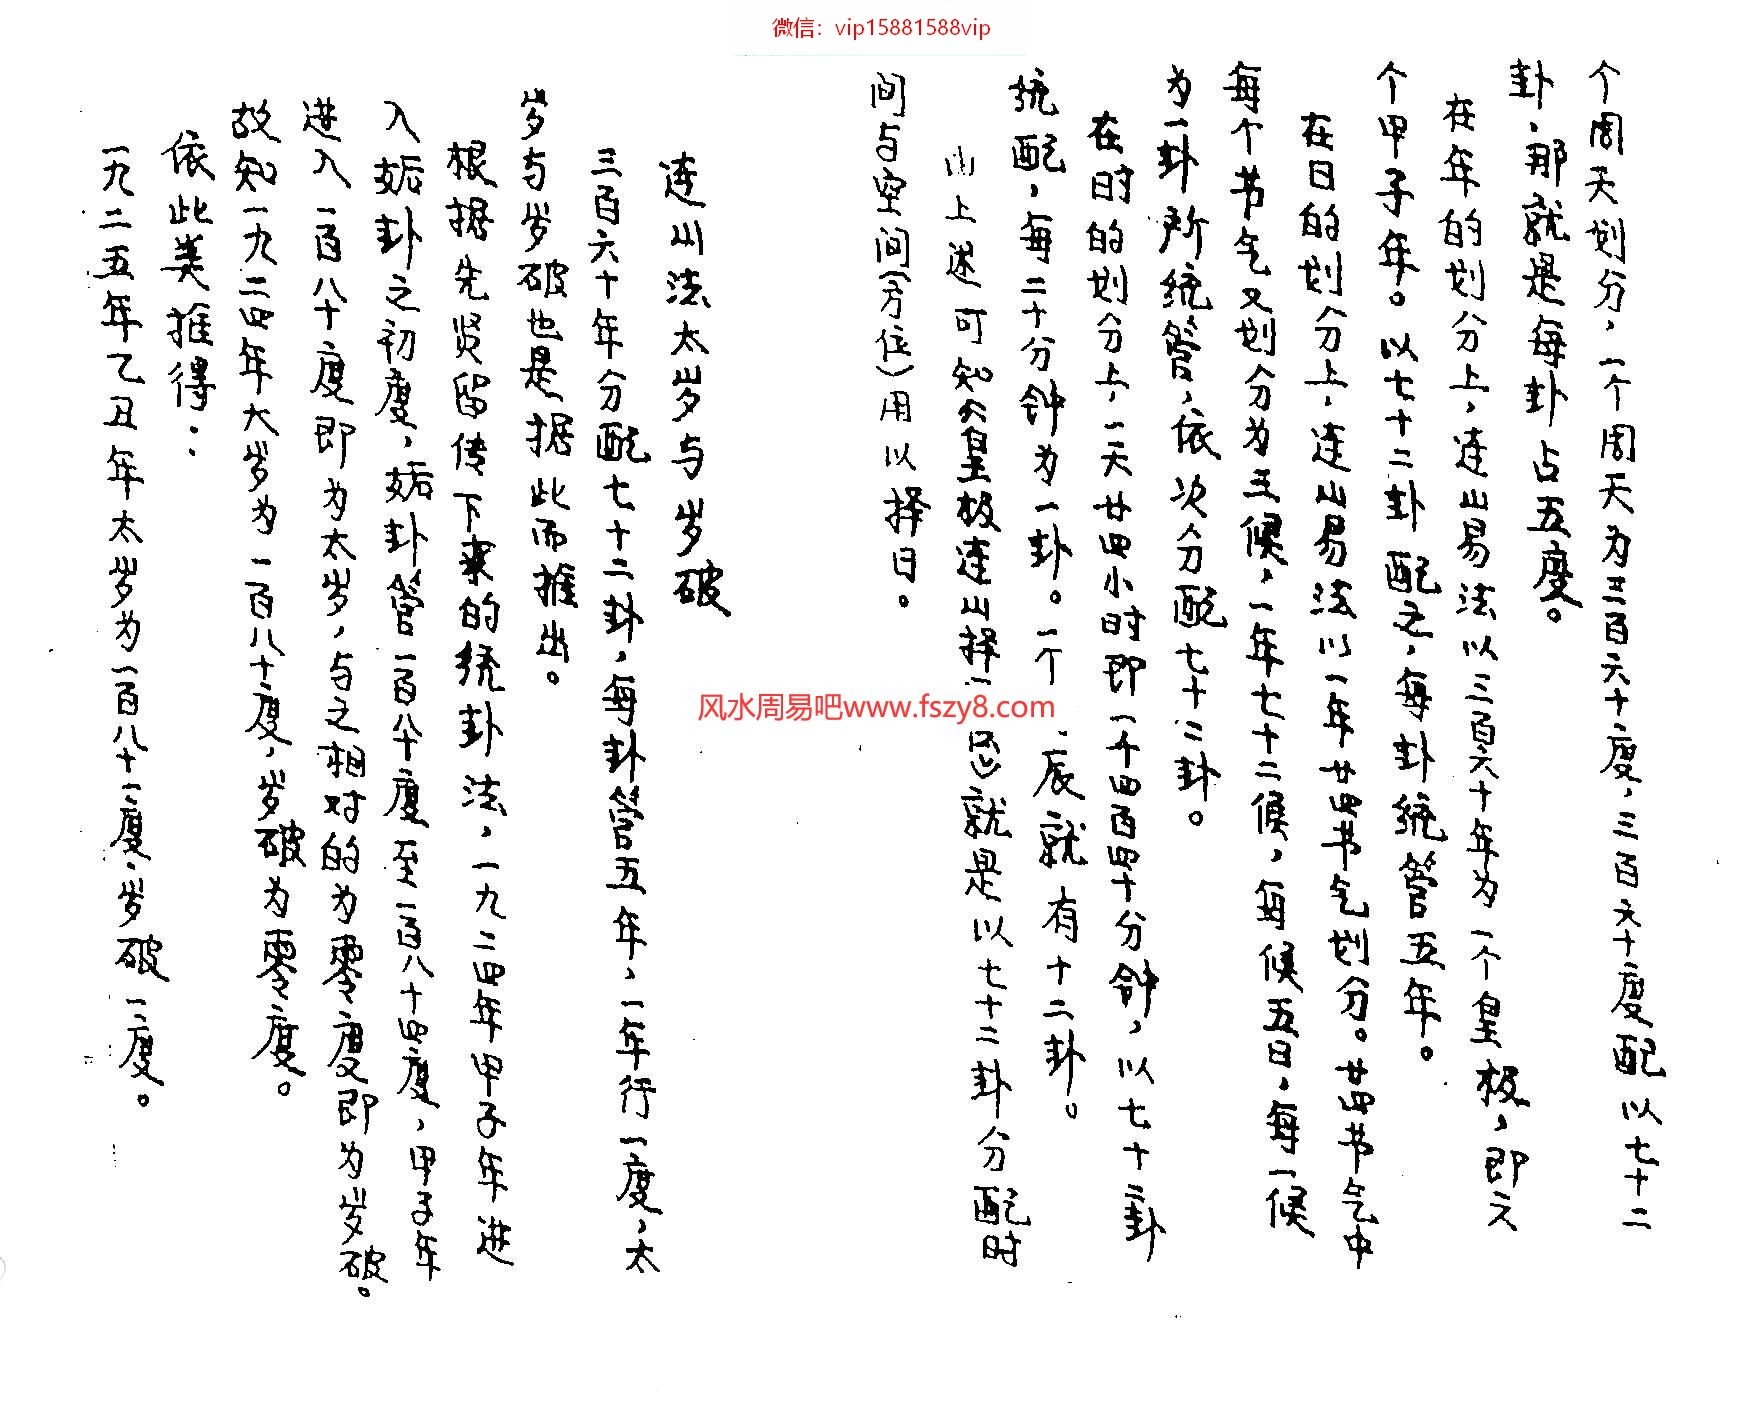 微信：vip15881588vip
个周天划分，一个周天为三百六十度，三百六十度配以七十二
卦，那就是每卦占五度。
在年的划分上，连山易法以三百六十年为一个皇极，即六
个甲子年。以七十二卦配之，每卦统管五年。
在日的划分上，连山易法以一年廿四节气划分。廿四节气中
每个节气又划分为三候，一年七十二候，每候五日，每一候
为一卦所统管，依次分配七十二卦。
在时的划分上，一天廿四小时即一千四百四十分钟，以七十二卦
统配，每二十分钟为一卦。一个 辰就有十二卦。
上述可知《皇极连山择 》就是以七十二卦分配时
间与空间（方位）用以择日。
连山法太岁与岁破
三百六十年分配七十二卦，每卦管五年，一年行一度，太
岁与岁破也是据此而推出。
根据先贤留传下来的统卦法，一九二四年甲子年进
入姤卦之初度，姤卦管一百八十度至一百八十四度，甲子年
进入一百八十度即为太岁，与之相对的为零度即为岁破。
故知一九二四年太岁为一百八十度，岁破为零度。
依此类推得：
一九二五年乙丑年太岁为一百八十一度，岁破一度。
风水周易吧www.fszy8.com